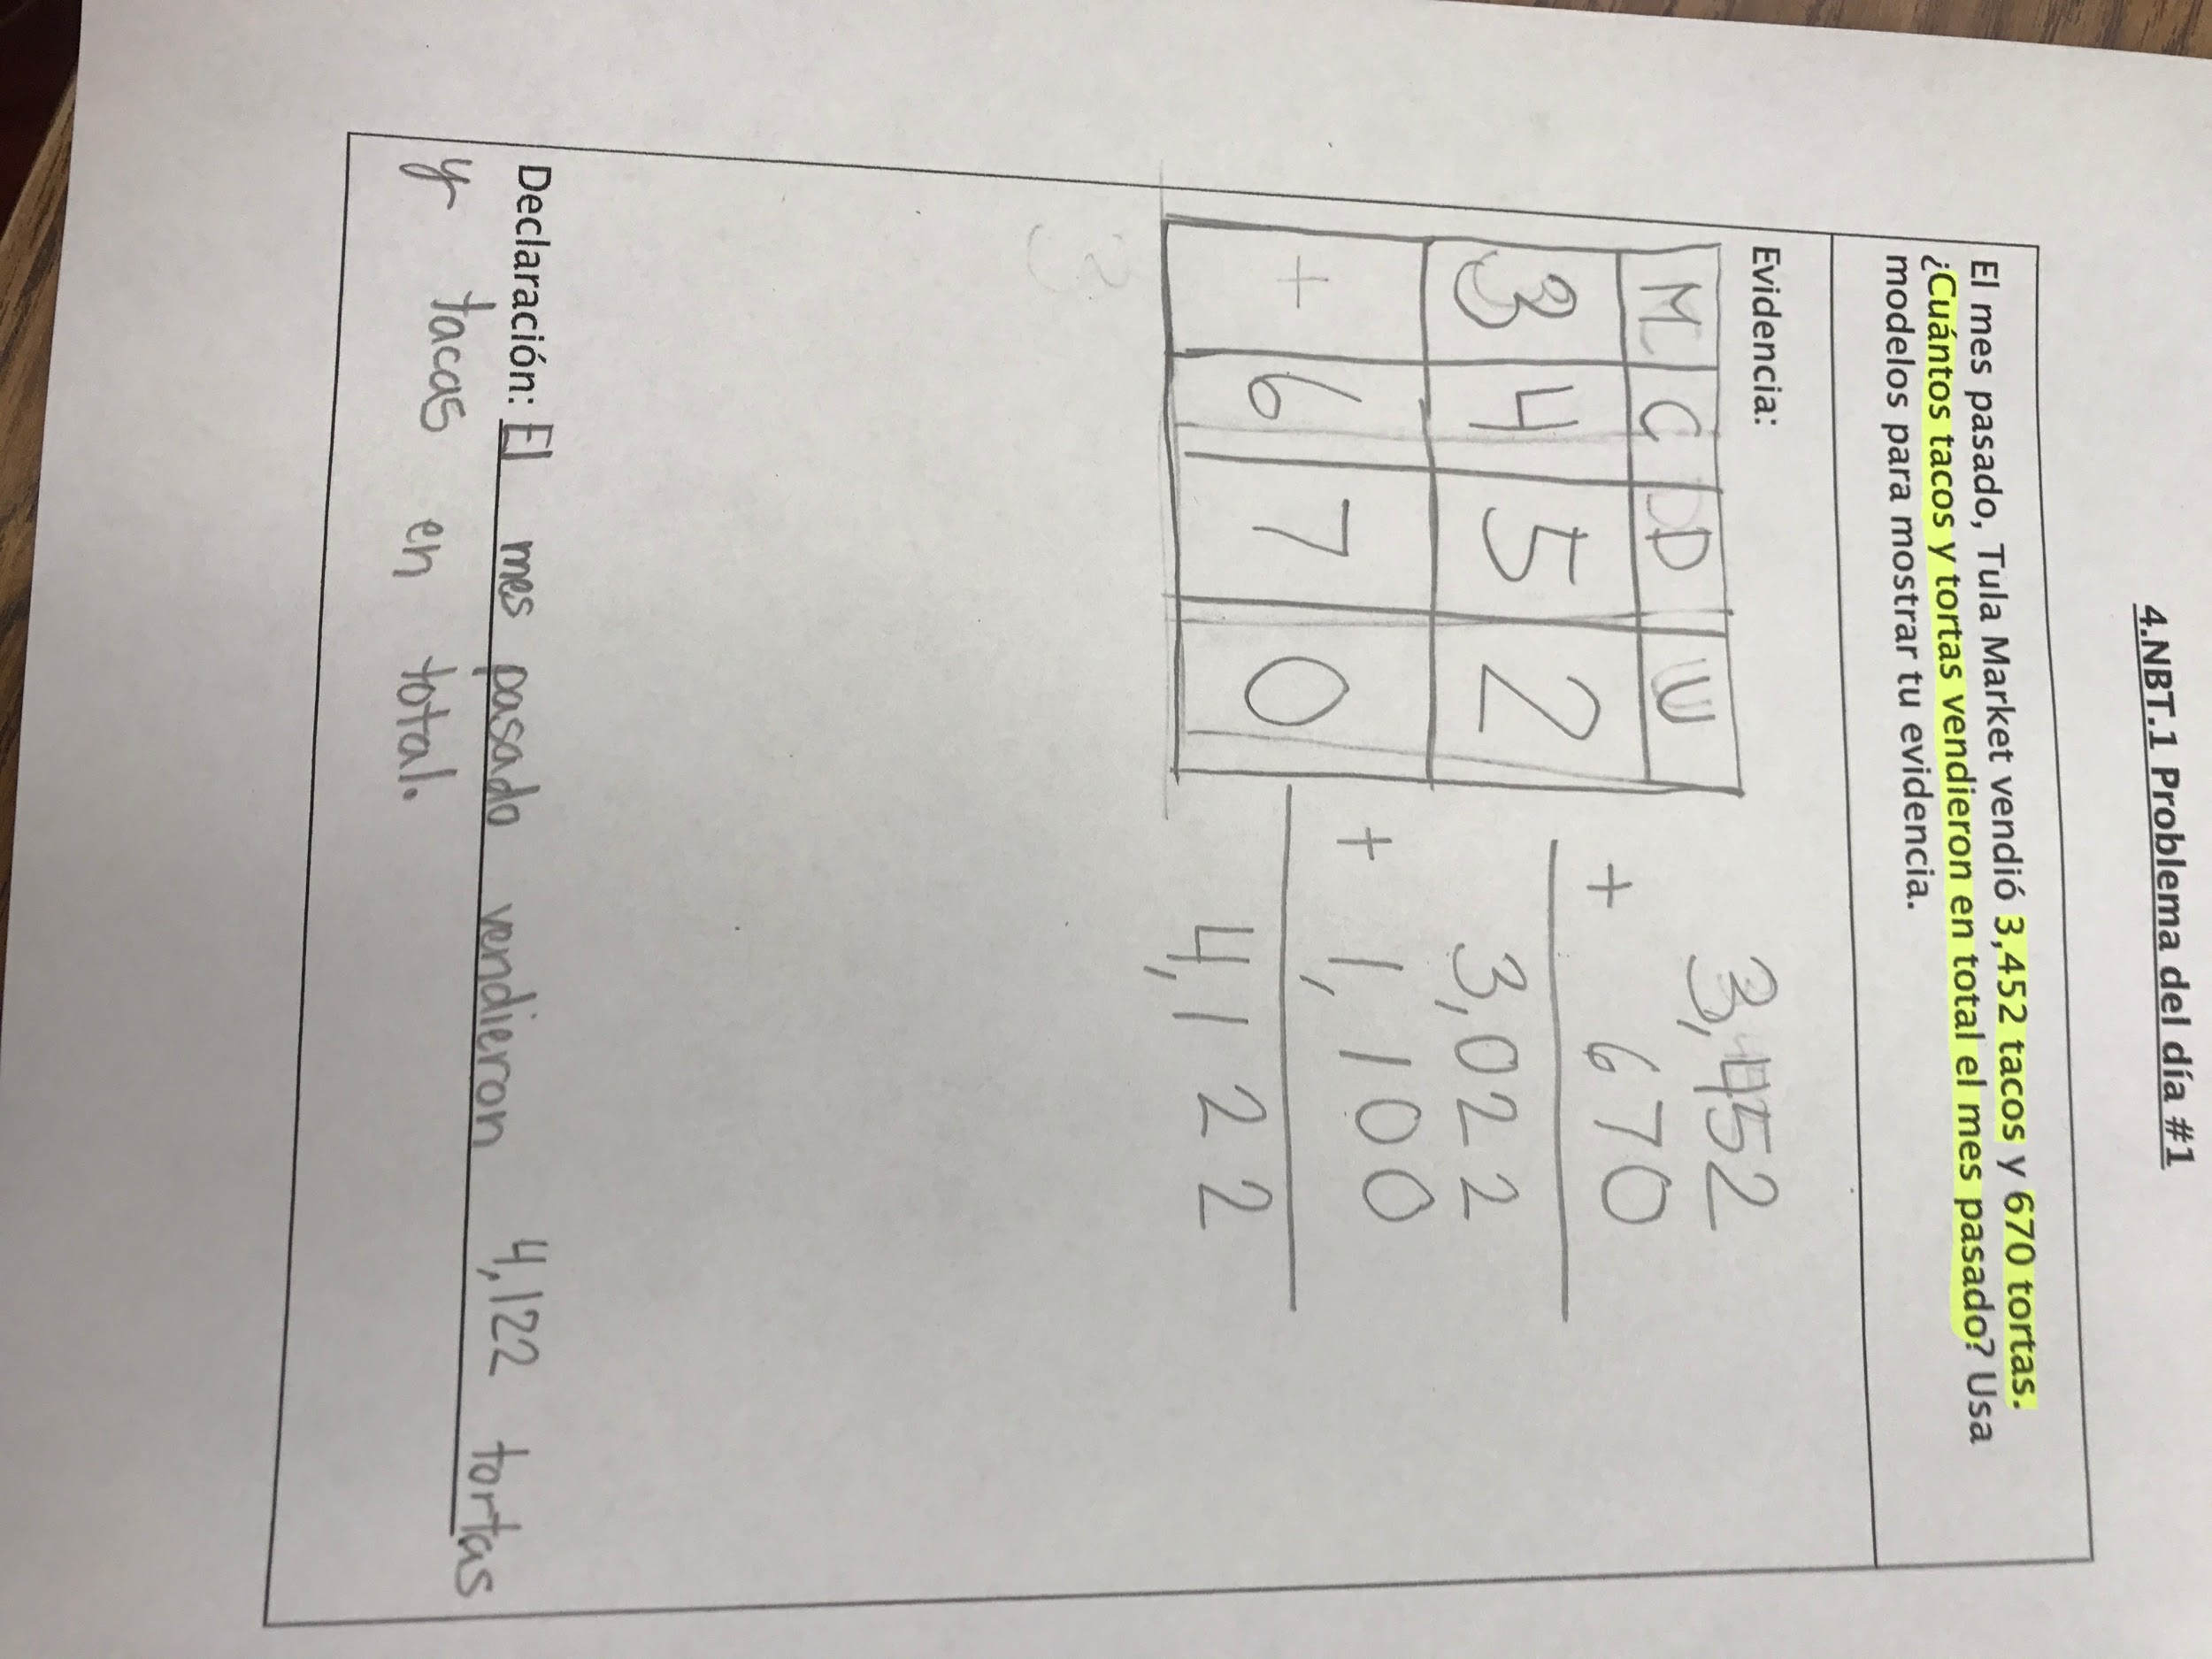 4.NBT.1 Problema del día #1
El mes pasado, Tula Market vendió 3,452 tacos y 670 tortas.
¿Cuántos tacos y tortas vendieron en total el mes pasado? Usa
modelos para mostrar tu evidencia.
Evidencia:
M C D U
3 4 5 2
+ 6 7 0
3,452
+ 670
3,022
+ 1,100
4,122
Declaración: El mes pasado vendieron 4,122 tortas
y tacas en total.